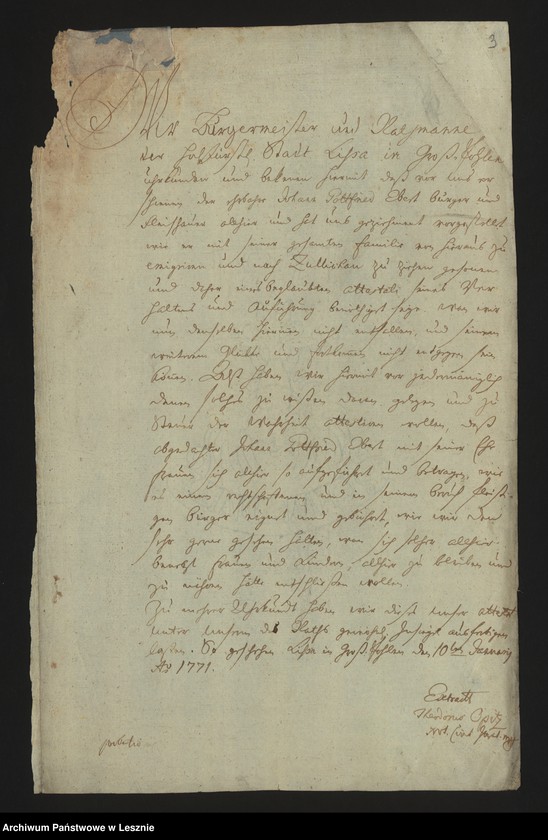 3
Wir Bürgermeister und Rathmanne
der Hochfürstl. Stadt Lissa in Groß-Pohlen
uhrkunden und bekennen hiermit daß vor uns er
schienen der ehrbahre Johann Gottfried Ebert Bürger und
Fleischhauer alhier und hat uns geziehmend vorgestellt
wie er mit seiner gesamten Familie von hieraus zu
emigriren und nach Züllichau zu ziehen gesonnen
und daher eines beglaubten Attestats seines Ver
haltens und Aufführung benöthiget seye. Wann wir
nun denselben hierinnen nicht entfallen, und seinem
weiteren Glücke und nicht entgegen sein
können. Als haben wir hiermit vor jedermänniglich
denen solches zu wißen daran gelegen und zu
Steuer der Wahrheit attestiren wollen, daß
obgedachter Johann Gottfried Ebert mit seiner Ehe
frauen sich alhier so aufgeführet und betragen, wie
es einem rechtschaffenen und in seinem Beruf fleißi-
gen Bürger eignet und gebühret, wir wir dann
sehr gerne gesehen hätten, wan sich solcher alhier
benebst Frauen und Kindern, alhier zu bleiben und
zu nähren hätte entschließen wollen.
Zu mehrer Uhrkundt haben wir dieses unser Attestat
unter unserm des Raths Insiegel ausfertigen
laßen. So geschehen Lissa in Groß-Pohlen den 10ten January
Ao 1771.
Extradt.
Theodorus Opitz
Not. Civit.
Archiwum Państwowe w Lesznie